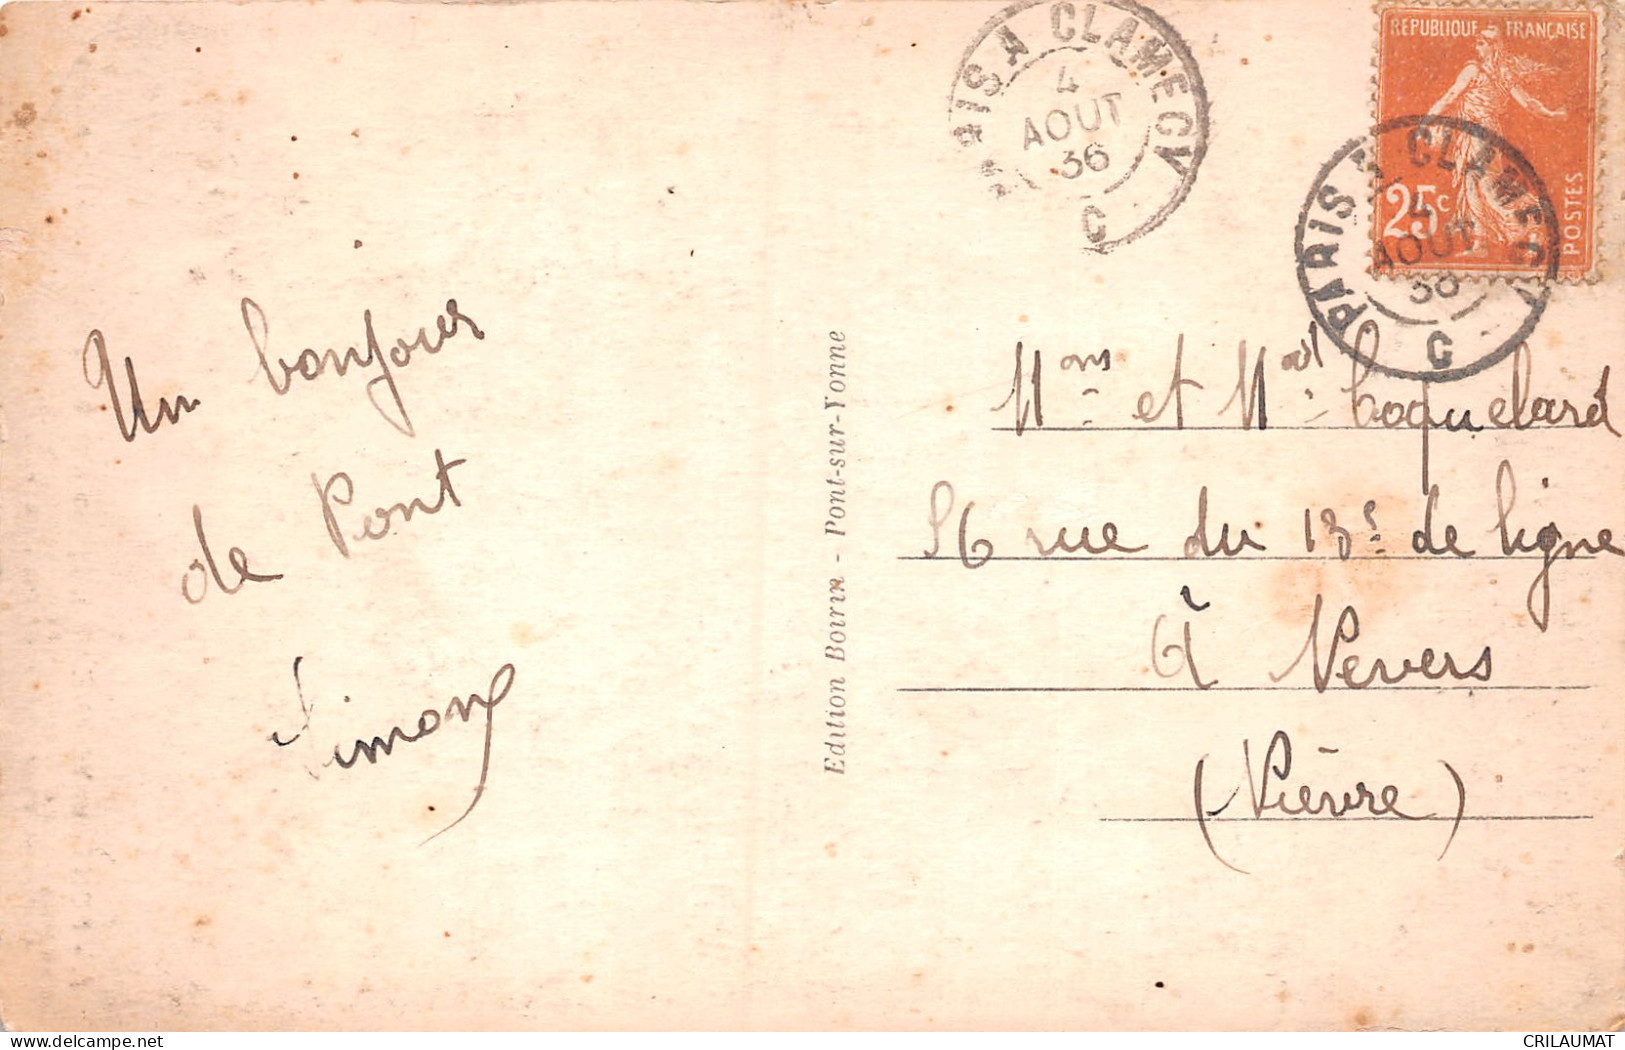 PARIS A CLAMECY
4
AOUT
36
C
REPUBLIQUE FRANÇAISE
25c
POSTES
PARIS A CLAMECY
4
AOUT
36
C
Un bonjour
de Pont
Simone
Edition Boivin - Pont-sur-Yonne
Mons et Mad Coquelard
56 rue du 13e de ligne
à Nevers
(Nièvre)
delcampe.net
CRILAUMAT